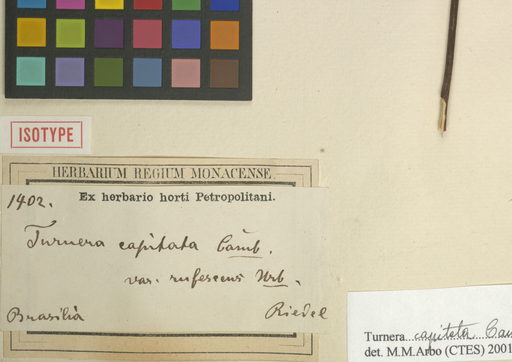 ISOTYPE
HERBARIUM REGIUM MONACENSE
1402. Ex herbario horti Petropolitani.
Turnera capitata Camb.
var. rufescens Urb.
Brasilia Riedel
Turnera capitata Cam
det. M.M.Arbo (CTES) 2001